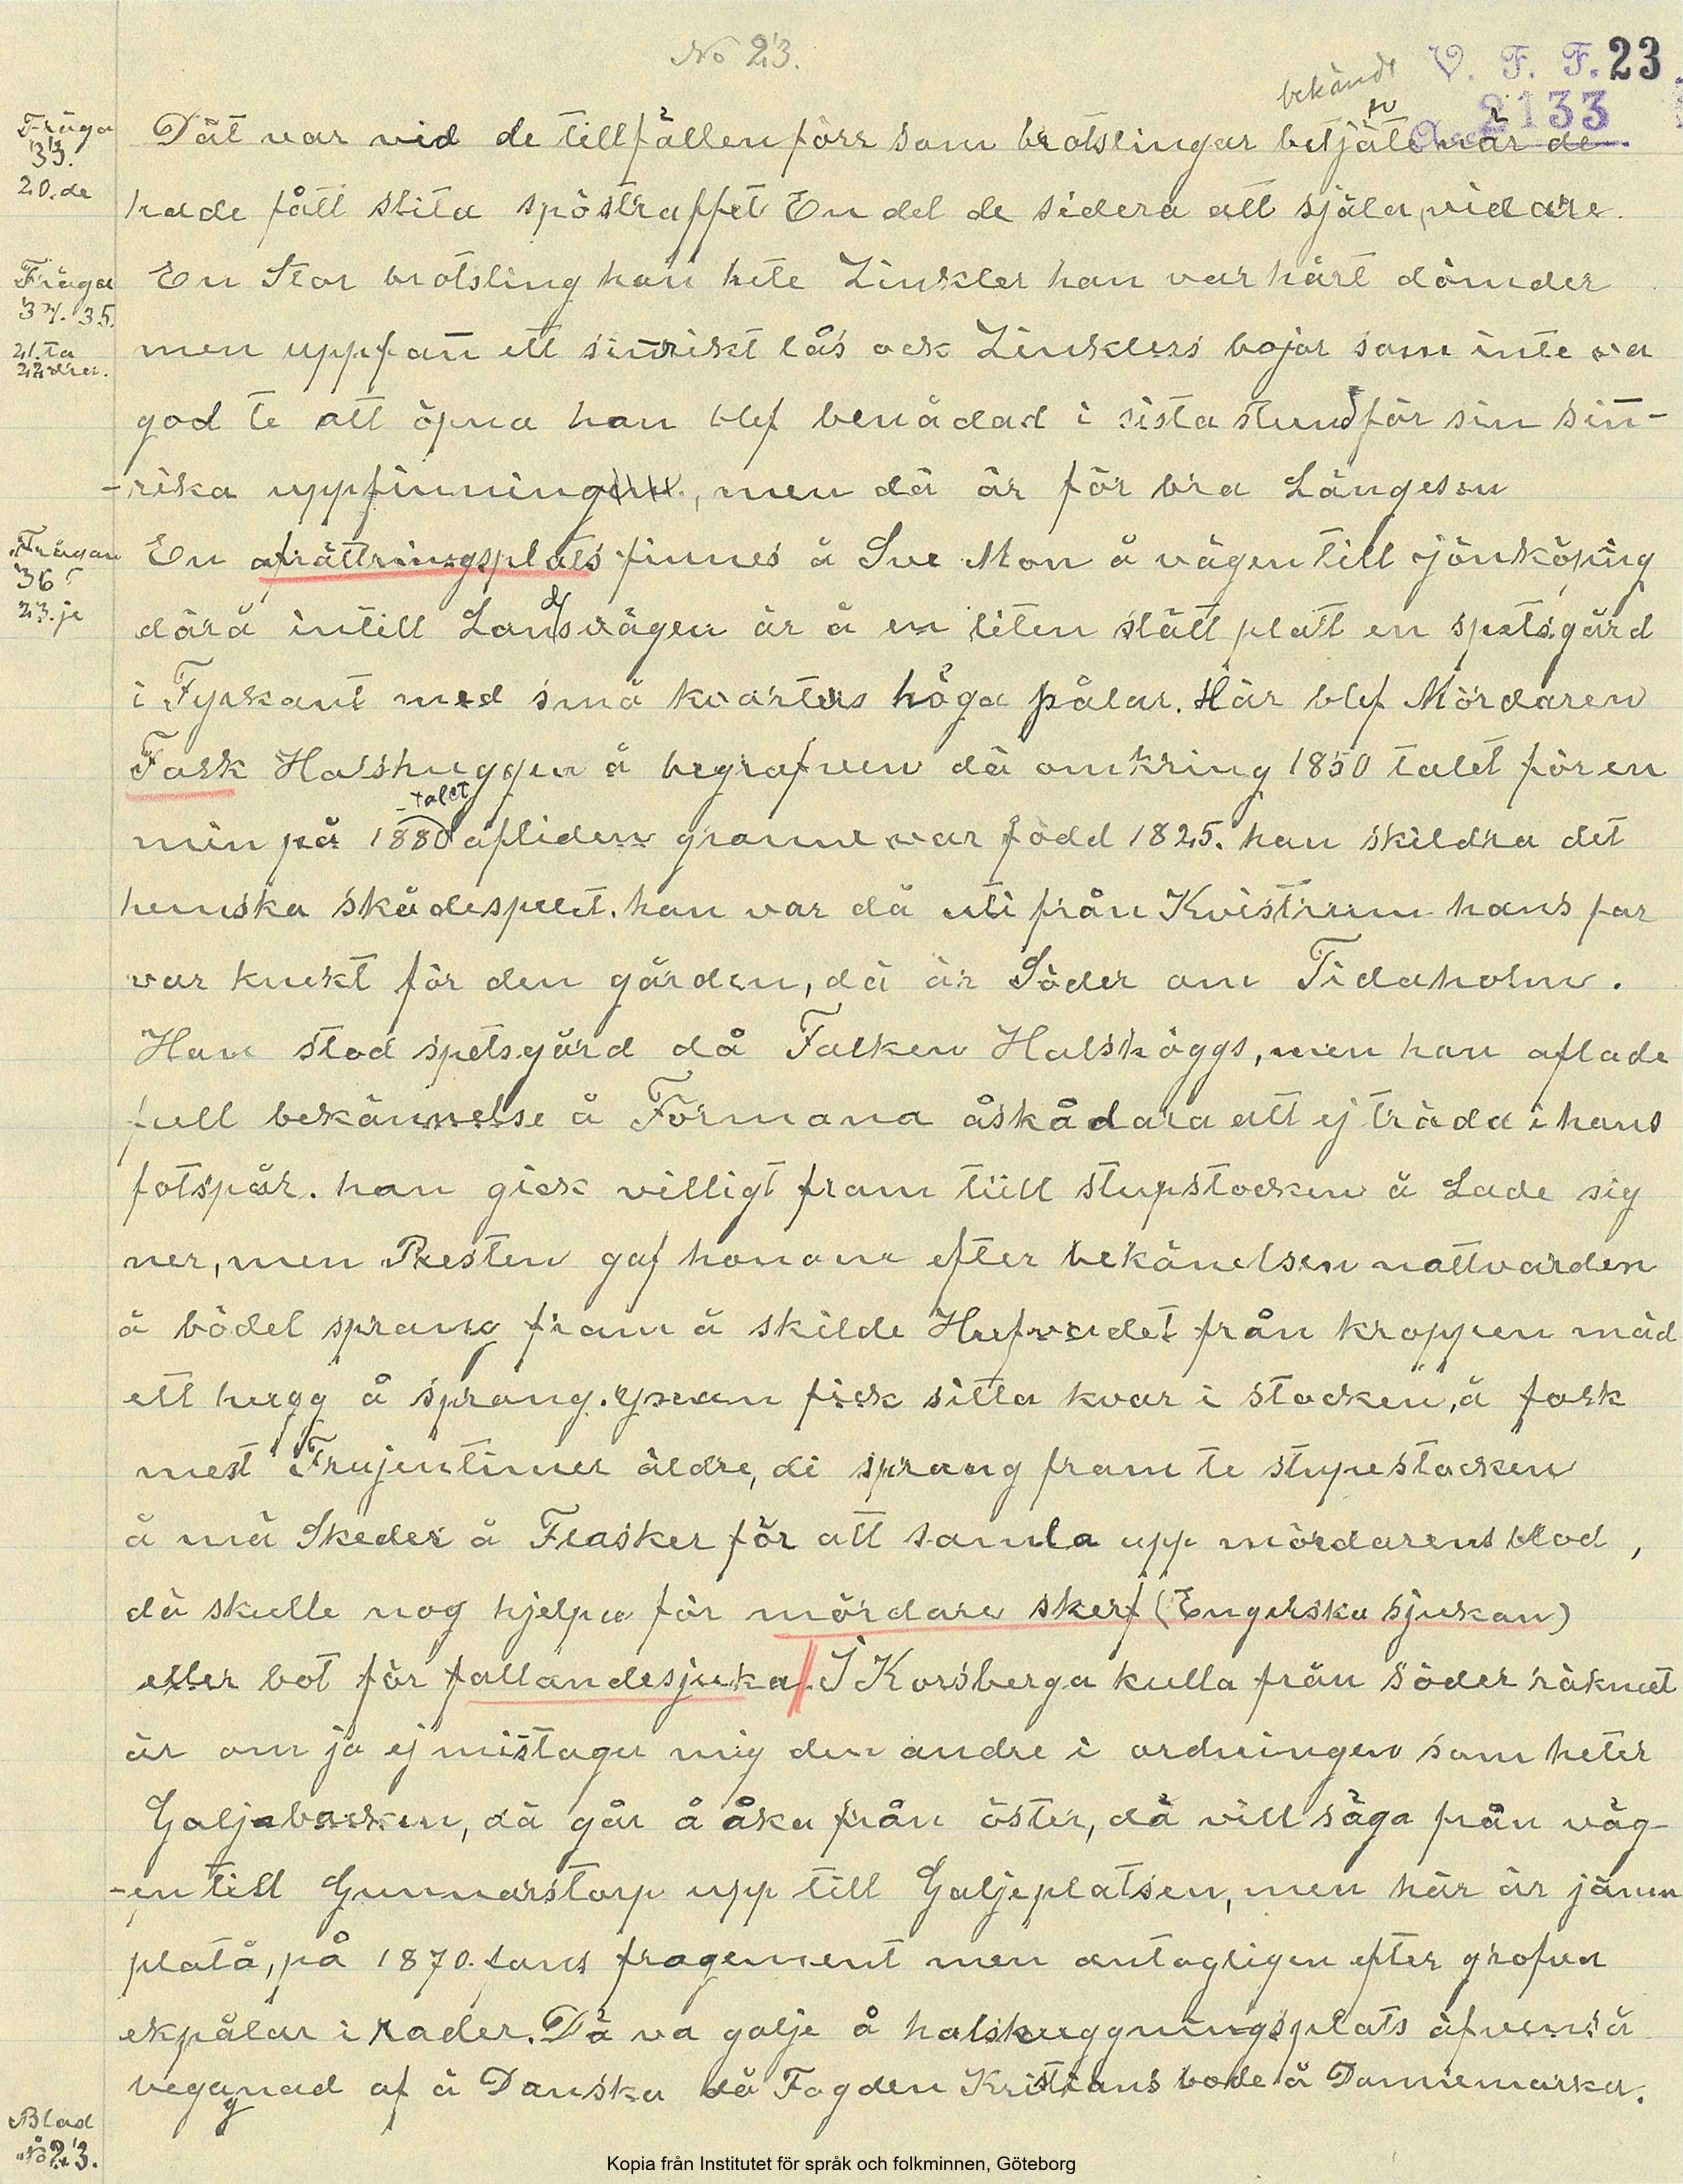 No 23.
V. F. F. 23
bekändt
2133
Fråga
33.
20.de
Dät var vid de tillfällen förr som brotslingar betjäte när de
hade fått slita spöstraffet En del de sidera att själa, vidare.
Fråga
34. 35.
21.ta
22dra.
En Stor brotsling han hete Linkler han var hårt dömder
men uppfan ett sinrikt lås ock Linklers bojor som inte va
god te att öpna han blef benådad i sista stund för sin sin-
-rika uppfinning, men dä är för bra Längesen
Frågan
36
23.je
En afrättningsplats finnes å Sve Mon å vägen till jönköping
därå intill Landsvägen är å en liten slätt platt en spetsgärd
i Fyrkant med små kvarters höga pålar. Här blef Mördaren
Fask Halshuggen å begrafven dä omkring 1850 talet för en
min på 1880-talet afliden granne var född 1825. han skildra det
hemska skådespelet. han var då uti från Kvistrum hans far
var knekt för den gården, dä är Söder om Tidaholm.
Han stod spetsgärd då Falken Halshöggs, men han aflade
full bekännelse å Formana åskådara att ej träda i hans
fotspår. han gick villigt fram tiill stupstocken å Lade sig
ner, men Presten gaf honom efter bekänelsen nattvarden
å bödel sprang fram å skilde Hufvudet från kroppen mäd
ett hugg å sprang. yxan fick sitta kvar i stocken, å folk
mest Frujentimer äldre, di sprang fram te stupestocken
å mä Skeder å Flasker för att samla upp mördarens blod,
dä skulle nog hjelpa för mördare skerf (Engerska sjukan)
eller bot för fallandesjuka. I Korsberga kulla från Söder räknat
är om ja ej mistager mig den andre i ordningen som heter
Galjebacken, dä går å åka från öster, då vill säga från väg-
-en till Gunnarstorp upp till Galjeplatsen, men här är jämn
platå, på 1870. fans fragement men antagligen efter grofva
ekpålar i rader. Dä va galje å halshuggningsplats äfvenså
begagnad af å Danska då Fogden Kristians bode å Dannemarka.
Blad
No 23.
Kopia från Institutet för språk och folkminnen, Göteborg